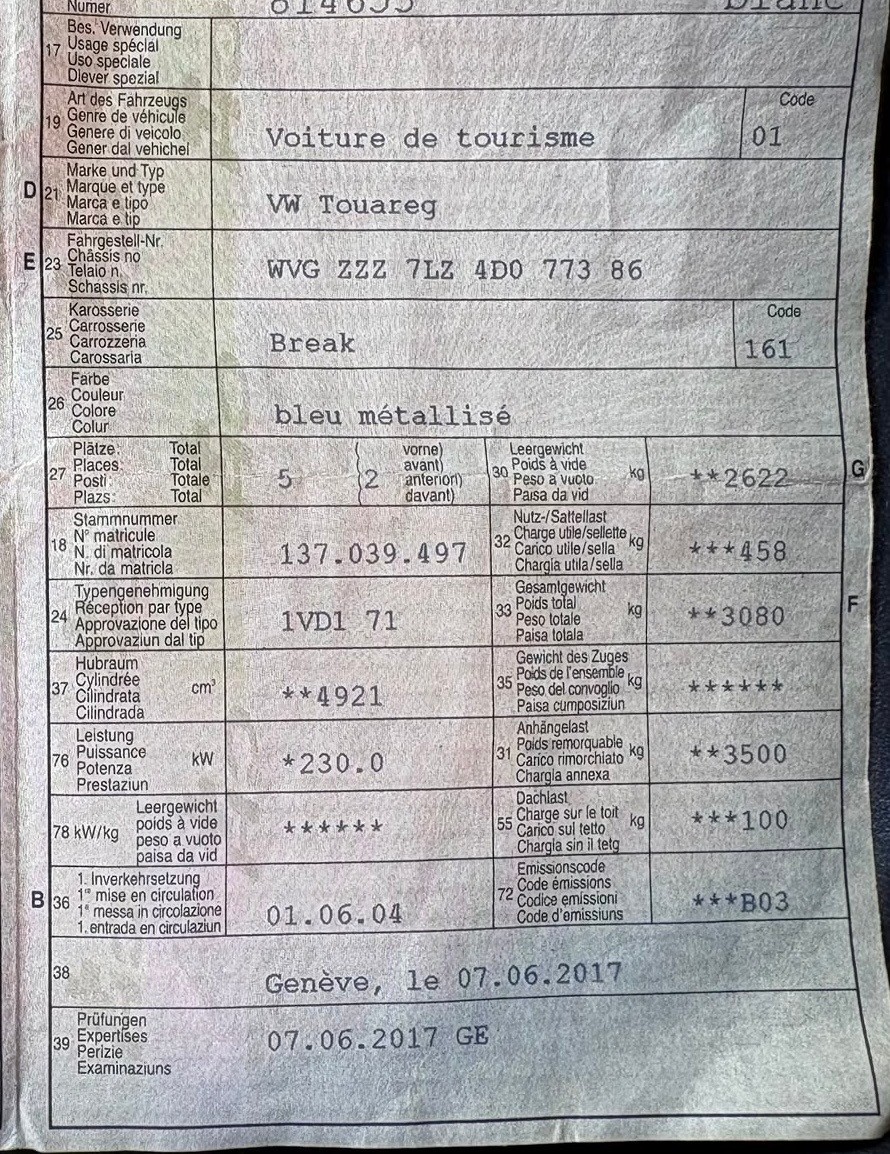 Numer
17 Bes. Verwendung
Usage spécial
Uso speciale
Diever spezial
19 Art des Fahrzeugs
Genre de véhicule
Genere di veicolo
Gener dal vehichel
Voiture de tourisme
Code
01
D 21 Marke und Typ
Marque et type
Marca e tipo
Marca e tip
VW Touareg
E 23 Fahrgestell-Nr.
Châssis no
Telaio n.
Schassis nr.
WVG ZZZ 7LZ 4D0 773 86
25 Karosserie
Carrosserie
Carrozzeria
Carossaria
Break
Code
161
26 Farbe
Couleur
Colore
Colur
bleu métallisé
27 Plätze: Total
Places: Total
Posti: Totale
Plazs: Total
5 (2 vorne)
avant)
anteriori)
davant)
30 Leergewicht
Poids à vide
Peso a vuoto
Paisa da vid
kg
**2622
G
18 Stammnummer
N° matricule
N. di matricola
Nr. da matricla
137.039.497
32 Nutz-/Sattellast
Charge utile/sellette
Carico utile/sella
Chargia utila/sella
kg
***458
24 Typengenehmigung
Réception par type
Approvazione del tipo
Approvaziun dal tip
1VD1 71
33 Gesamtgewicht
Poids total
Peso totale
Paisa totala
kg
**3080
F
37 Hubraum
Cylindrée
Cilindrata
Cilindrada
cm³
**4921
35 Gewicht des Zuges
Poids de l'ensemble
Peso del convoglio
Paisa cumposiziun
kg
******
76 Leistung
Puissance
Potenza
Prestaziun
kW
*230.0
31 Anhängelast
Poids remorquable
Carico rimorchiato
Chargia annexa
kg
**3500
78 kW/kg Leergewicht
poids à vide
peso a vuoto
paisa da vid
******
55 Dachlast
Charge sur le toit
Carico sul tetto
Chargia sin il tetg
kg
***100
B 36 1. Inverkehrsetzung
1re mise en circulation
1a messa in circolazione
1. entrada en circulaziun
01.06.04
72 Emissionscode
Code émissions
Codice emissioni
Code d'emissiuns
***B03
38 Genève, le 07.06.2017
39 Prüfungen
Expertises
Perizie
Examinaziuns
07.06.2017 GE